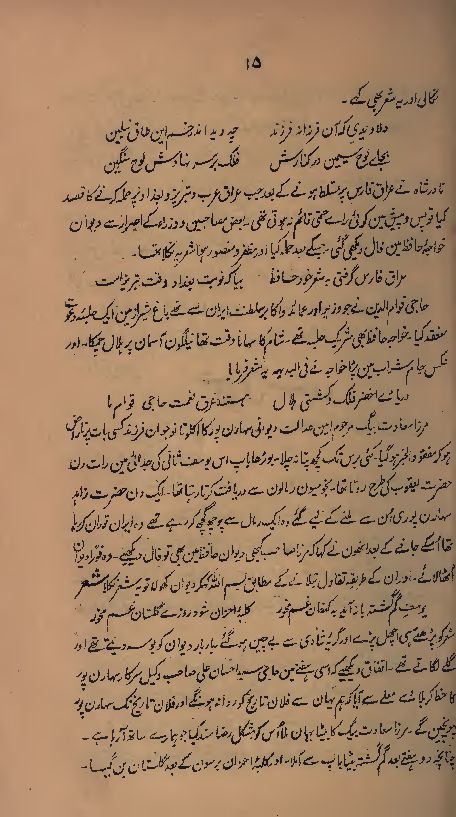 ۱۵
نکالی اور یہ شعر بھی کہے۔
دلا دیدی کہ آن فرزانہ فرزند چہ دید اندر خم این طاق نیلین
بجاے لوح سیمین در کنارش فلک بر سر نہادش لوح سنگین
نادر شاہ نے عراق فارس پر مسلط ہونے کے بعد جب عراق عرب و تبریز و بغداد پر حملہ کرنے کا قصد
کیا تو پس و پیش مین کوئی راے حتمی قائم نہ ہوتی تھی۔ بعض مصاحبین و وزراء کے اصرار سے دیوان
خواجہ حافظ مین فال دیکھی گئی۔ جسکے بعد حملہ کیا اور مظفر و منصور ہوا شعر یہ نکلا تھا۔
عراق فارس گرفتی بہ شعر خود حافظ بیا کہ نوبت بغداد و وقت تبریز است
حاجی قوام الدین نے جو وزیر اور عمائد و اکابر سلطنت ایران سے تھے باغ شیراز مین ایک جلسہ دعوت
منعقد کیا۔ خواجہ حافظ بھی شریک جلسہ تھے۔ شام کا سہانا وقت تھا نیلگون آسمان پر ہلال چمکا۔ اور
عکس جام شراب مین پڑا خواجہ نے فی البدیہہ یہ شعر فرمایا
دریاے اخضر فلک و کشتی ہلال ہستند غرق نعمت حاجی قوام ما
مرزا سعادت بیگ مرحوم امین عدالت دیوانی سہارن پور کا اکلوتا نوجوان فرزند کسی بات پر ناراض
ہو کر مفقود الخبر ہو گیا۔ کئی برس تک کچھ پتا نہ چلا۔ بوڑھا باپ اس یوسف ثانی کی جدائی مین رات دن
حضرت یعقوب کی طرح روتا تھا۔ نجومیون رمالون سے دریافت کرتا رہتا تھا۔ ایک دن حضرت زاہد
سہارن پوری ان سے ملنے کے لیے گئے وہ ایک رمال سے پوچھ گچھ کر رہے تھے وہ ایران توران کر رہا
تھا اسکے جانے کے بعد انھون نے کہا کہ مرزا صاحب کبھی دیوان حافظ مین بھی تو فال دیکھیے۔ وہ فورا دیوان
اٹھا لائے۔ اور ان کے طریقہ تفاول بتلانے کے مطابق بسم اللہ کہکر دیوان کھولا تو یہ شعر نکلا شعر
یوسف گم گشتہ باز آید بہ کنعان غم مخور کلبہ احزان شود روزے گلستان غم مخور
شعر کو پڑھتے ہی اچھل پڑے اور گریہ شادی سے بے چین ہو گئے بار بار دیوان کو بوسہ دیتے تھے اور
گلے لگاتے تھے۔ اتفاق دیکھیے کہ اسی ہفتے مین حاجی سید احسان علی صاحب وکیل سرکار سہارن پور
کا خط کربلائے معلے سے آیا کہ ہم یہان سے فلان تاریخ کو روانہ ہونگے اور فلان تاریخ تک سہارن پور
پہونچین گے۔ مرزا سعادت بیگ کا بیٹا یہان ملا اس کو بشکل رضامند کیا جو ہمارے ساتھ آرہا ہے۔
چنانچہ دو ہفتے بعد گم گشتہ بیٹا باپ سے آملا۔ اور کلبہ احزان برسون کے بعد گلستان بن گیا۔